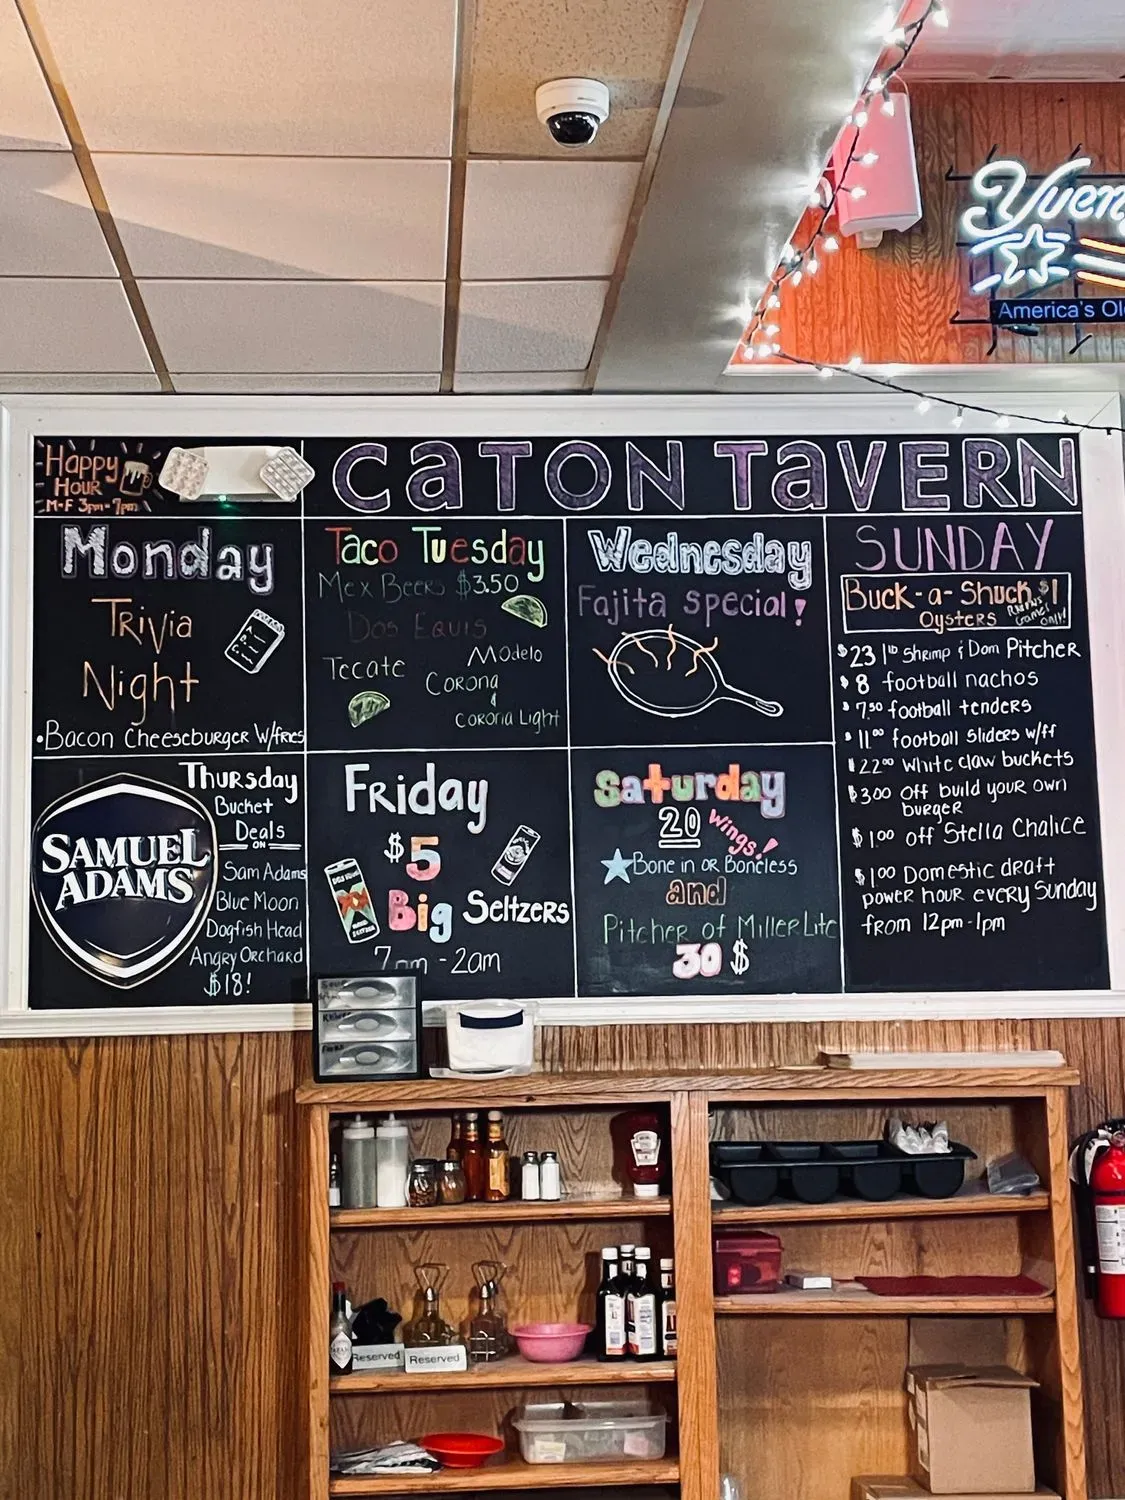 Yuen
America's Ol
Happy
Hour
M-F 3pm-7pm
CATON TAVERN
Monday
Trivia
Night
•Bacon Cheeseburger W/fries
Taco Tuesday
Mex Beers $3.50
Dos Equis
Tecate
Modelo
Corona
&
Corona Light
Wednesday
Fajita special!
SUNDAY
Buck-a-Shuck $1
Oysters
only!
$23 1lb Shrimp & Dom Pitcher
$8 football nachos
$7.50 football tenders
$11.00 football sliders w/ff
$22.00 white claw buckets
$3.00 off build your own
burger
$1.00 off Stella Chalice
$1.00 Domestic draft
power hour every Sunday
from 12pm-1pm
SAMUEL
ADAMS
Thursday
Bucket
Deals
ON
Sam Adams
Blue Moon
Dogfish Head
Angry Orchard
$18!
Friday
$5
Big Seltzers
7pm - 2am
Saturday
20 Wings!
Bone in or Boneless
and
Pitcher of Miller Lite
30 $
Reserved
Reserved